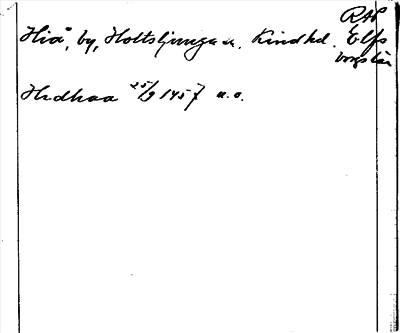 RAP
Hiå, by, Holtsljunga sn. Kind hd. Elfs
borgs län
Hidhaa 25/9 1457 a. o.